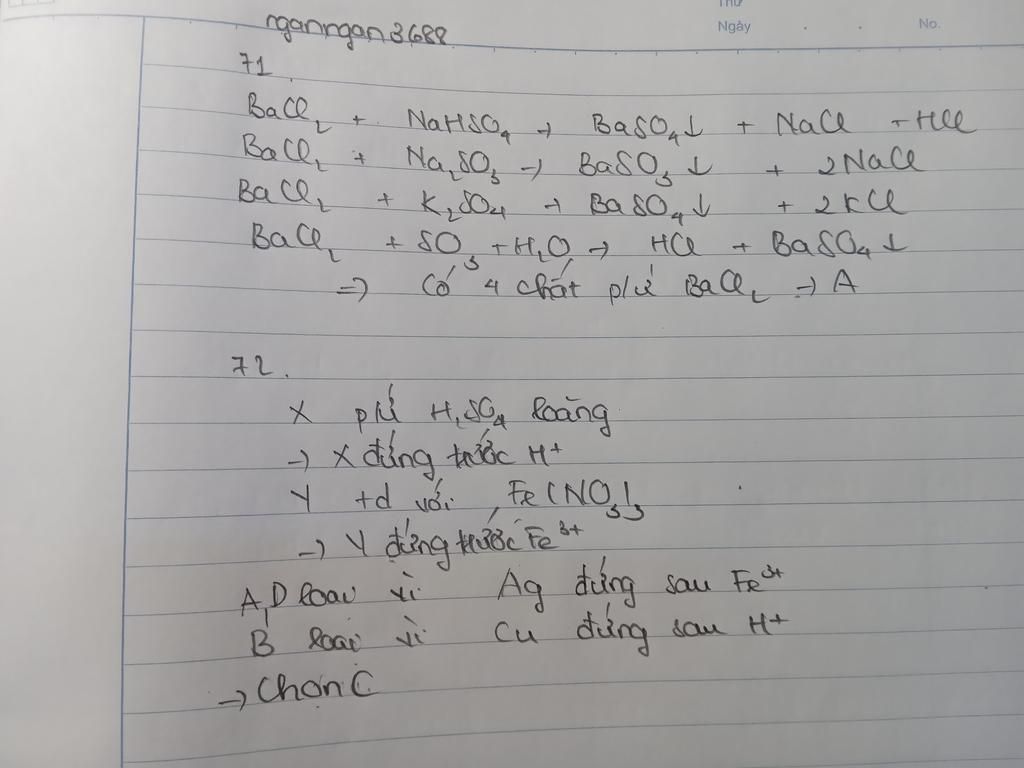 Thứ
Ngày . . No.
nganngan3688
71.
BaCl₂ + NaHSO₄ → BaSO₄↓ + NaCl + HCl
BaCl₂ + Na₂SO₃ → BaSO₃↓ + 2NaCl
BaCl₂ + K₂SO₄ → BaSO₄↓ + 2KCl
BaCl₂ + SO₃ + H₂O → HCl + BaSO₄↓
=> Có 4 chất p/ứ BaCl₂ → A
72.
X p/ứ H₂SO₄ loãng
→ X đứng trước H⁺
Y t/d với Fe(NO₃)₃
→ Y đứng trước Fe³⁺
A,D loại vì Ag đứng sau Fe³⁺
B loại vì Cu đứng sau H⁺
→ Chọn C